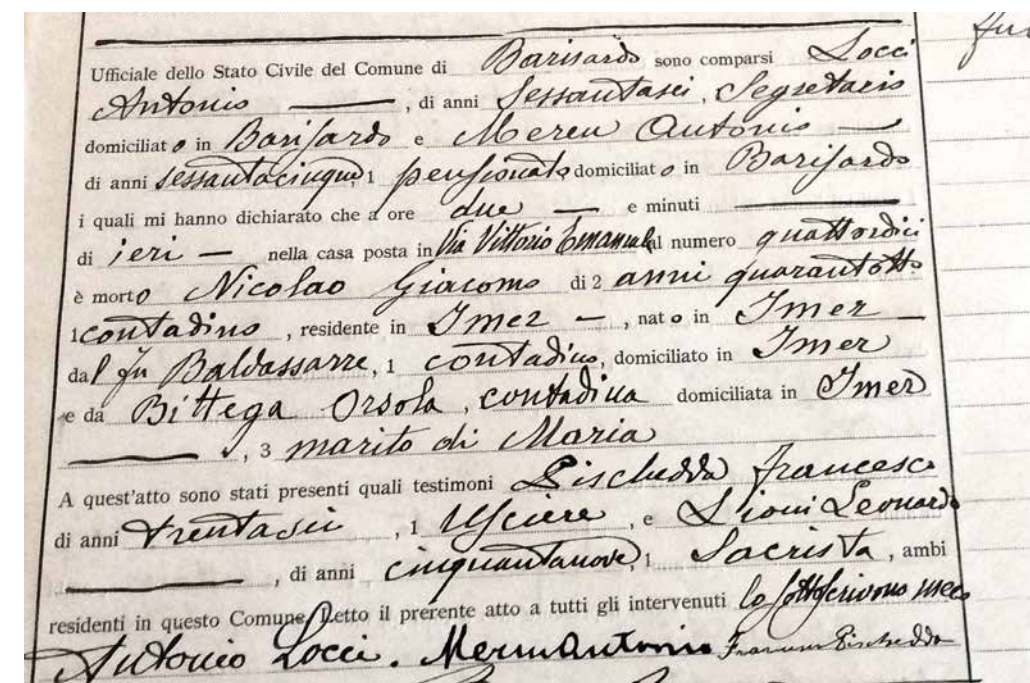 Ufficiale dello Stato Civile del Comune di Barisardo sono comparsi Locci
Antonio , di anni sessantasei, Segretario
domiciliato in Barisardo e Mereu Antonio
di anni sessantacinque, 1 pensionato domiciliato in Barisardo
i quali mi hanno dichiarato che a ore due — e minuti —
di ieri — nella casa posta in Via Vittorio Emanuele al numero quattordici
è morto Nicolao Giacomo di 2 anni quarantotto
1 contadino , residente in Imer — , nato in Imer —
dal fu Baldassarre, 1 contadino, domiciliato in Imer
e da Bittega Orsola, contadina domiciliata in Imer
— , 3 marito di Maria
A quest'atto sono stati presenti quali testimoni Pischedda Francesco
di anni trentasei , 1 Usciere , e Lioni Leonardo
— , di anni cinquantanove, 1 Sacrista , ambi
residenti in questo Comune. Letto il prerente atto a tutti gli intervenuti lo sottoscrivono meco
Antonio Locci. Mereu Antonio Francesco Pischedda